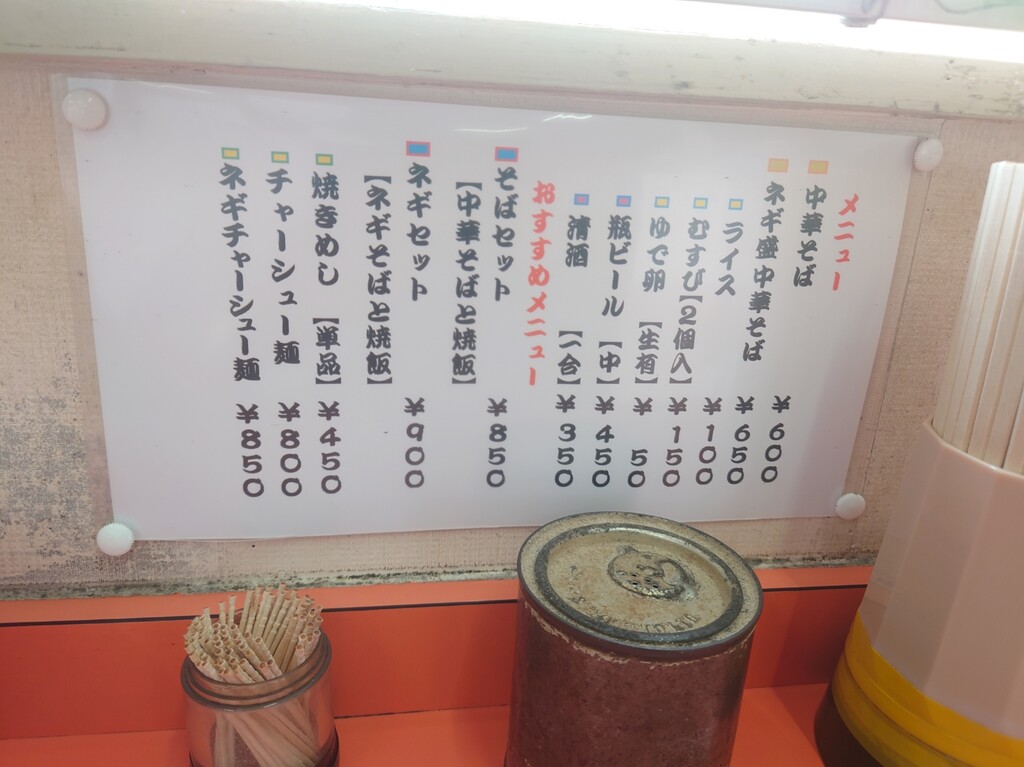 メニュー
中華そば ¥600
ネギ盛中華そば ¥650
ライス ¥100
むすび【2個入】 ¥150
ゆで卵 【生有】 ¥50
瓶ビール 【中】 ¥450
清酒 【一合】 ¥350
おすすめメニュー
そばセット ¥850
【中華そばと焼飯】
ネギセット ¥900
【ネギそばと焼飯】
焼きめし 【単品】 ¥450
チャーシュー麺 ¥800
ネギチャーシュー麺 ¥850